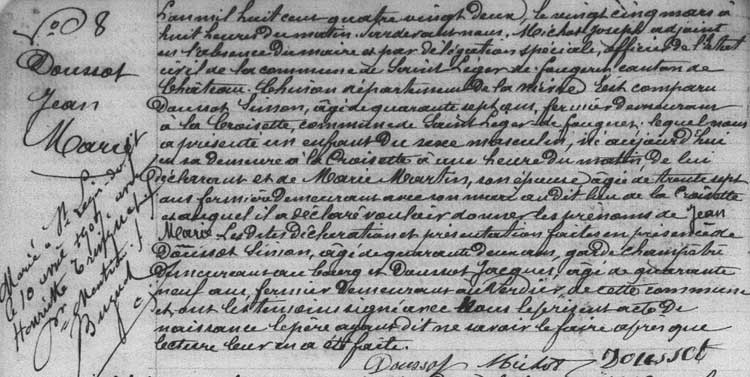 No 8
Doussot
Jean
Marie
Marié à St Léger-du-f
le 10 avril 1907, avec
Henriette
L'an mil huit cent quatre vingt deux, le vingt cinq mars à
huit heures du matin. Pardevant nous. Michot Joseph adjoint
en l'absence du maire et par délégation spéciale, officier de l'état
civil de la commune de Saint Léger de fougeret, canton de
Château-Chinon département de la nièvre Est comparu
Doussot Simon, âgé de quarante sept ans, fermier demeurant
à la Croisette, commune de Saint Léger de fougeret. lequel nous
a présenté un enfant du sexe masculin, né aujourd'hui
en sa demeure à la Croisette à une heure du matin de lui
déclarant et de Marie Martin, son épouse âgée de trente sept
ans fermière demeurant avec son mari au dit lieu de la Croisette
et auquel il a déclaré vouloir donner les prénoms de Jean
Marie. Les dites déclaration et présentation faites en présence de
Doussot Simon, âgé de quarante deux ans, garde champêtre
demeurant au bourg et Doussot Jacques, âgé de quarante
neuf ans, fermier demeurant au Verdier de cette commune
et ont les témoins signé avec Nous le présent acte de
naissance le père ayant dit ne savoir le faire après que
lecture leur en a été faite.
Doussot Michot Doussot